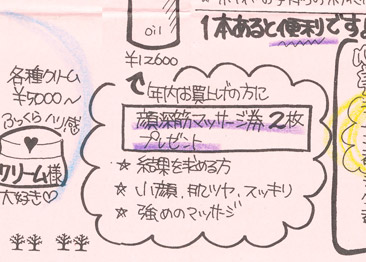 oil
1本あると便利です!
¥12600
各種クリーム
¥5000〜
ふっくらハリ感
クリーム様
大好き♡
年内お買上げの方に
顔深筋マッサージ券2枚
プレゼント
☆ 結果を求める方
☆ 小顔、肌ツヤ、スッキリ
☆ 強めのマッサージ